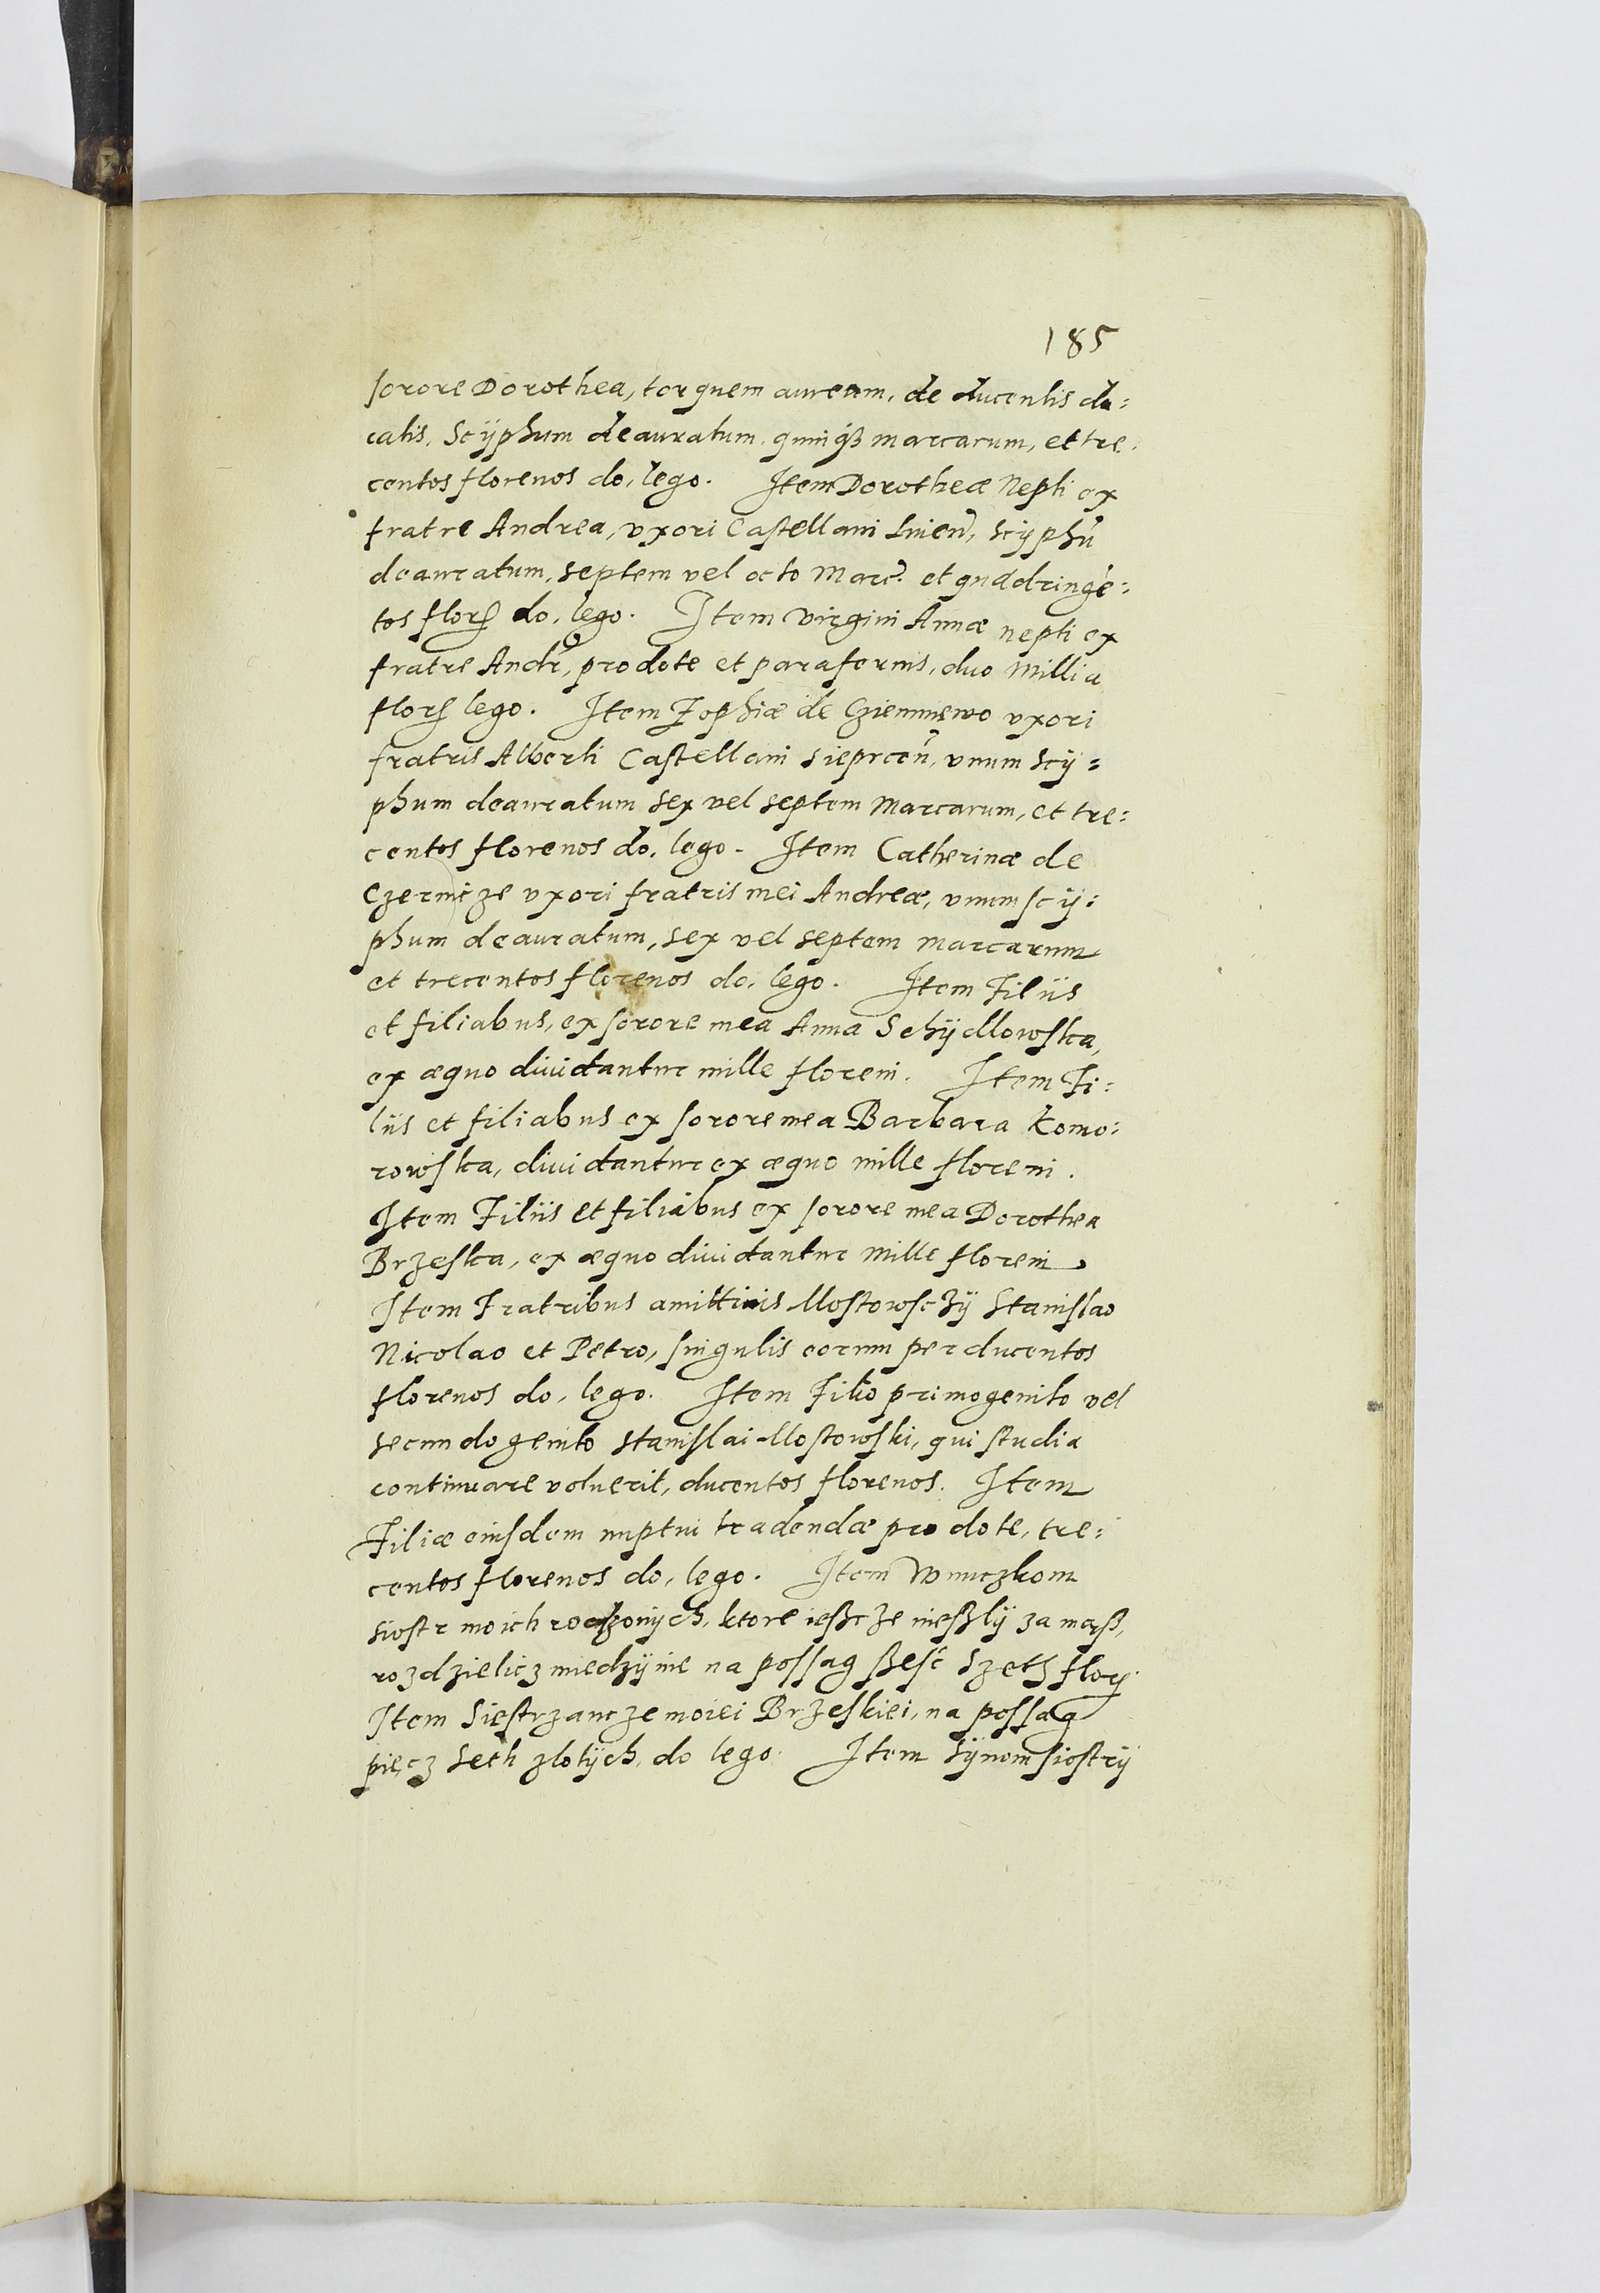 185
sorore Dorothea, torquem auream, de ducentis du:
catis, Scÿphum deauratum quinqȝ marcarum, et tre:
centos florenos do, lego. Item Dorotheæ Nepti ex
fratre Andrea, vxori Castellani Liuen̄, scÿphū
deauratum, septem vel octo Marc̄. et quadringē:
tos flor. do, lego. Item virgini Annæ nepti ex
fratre Andr, pro dote et parafernis, duo Millia
flor. lego. Item Zophiæ de Cziemniewo vxori
fratris Alberti Castellani Sieprcen̄, vnum Scÿ:
phum deauratum sex vel septem Marcarum, et tre:
centos florenos do, lego. Item Catherinæ de
Czernicze vxori fratris mei Andreæ, vnum scÿ:
phum deauratum, sex vel septem marcarum
et trecentos florenos do, lego. Item Filiis
et filiabus, ex sorore mea Anna Schÿdlowska,
ex æquo diuidantur mille floreni. Item Fi:
liis et filiabus ex sorore mea Barbara Komo:
rowska, diuidantur ex æquo mille floreni.
Item Filiis et filiabus ex sorore mea Dorothea
Brzeska, ex æquo diuidantur Mille floreni
Item Fratribus amittinis Mostowsczÿ Stanislao
Nicolao et Petro, singulis eorum per ducentos
florenos do, lego. Item Filio primogenito vel
secundo genito Stanislai Mostowski, qui studia
continuare voluerit, ducentos florenos. Item
Filiæ eiusdem nuptui tradendæ pro dote, tre:
centos florenos do, lego. Item Wnuczkom
siostr moich rodzonÿch, ktore ieszcze nieszlÿ za mąsz,
rozdzielicz miedzÿ nie na possag szesć Szeth flor.
Item Siestrzancze moiei Brzeskiei, na possag
pięcz Seth zlotÿch, do lego. Item Sÿnom siostrÿ